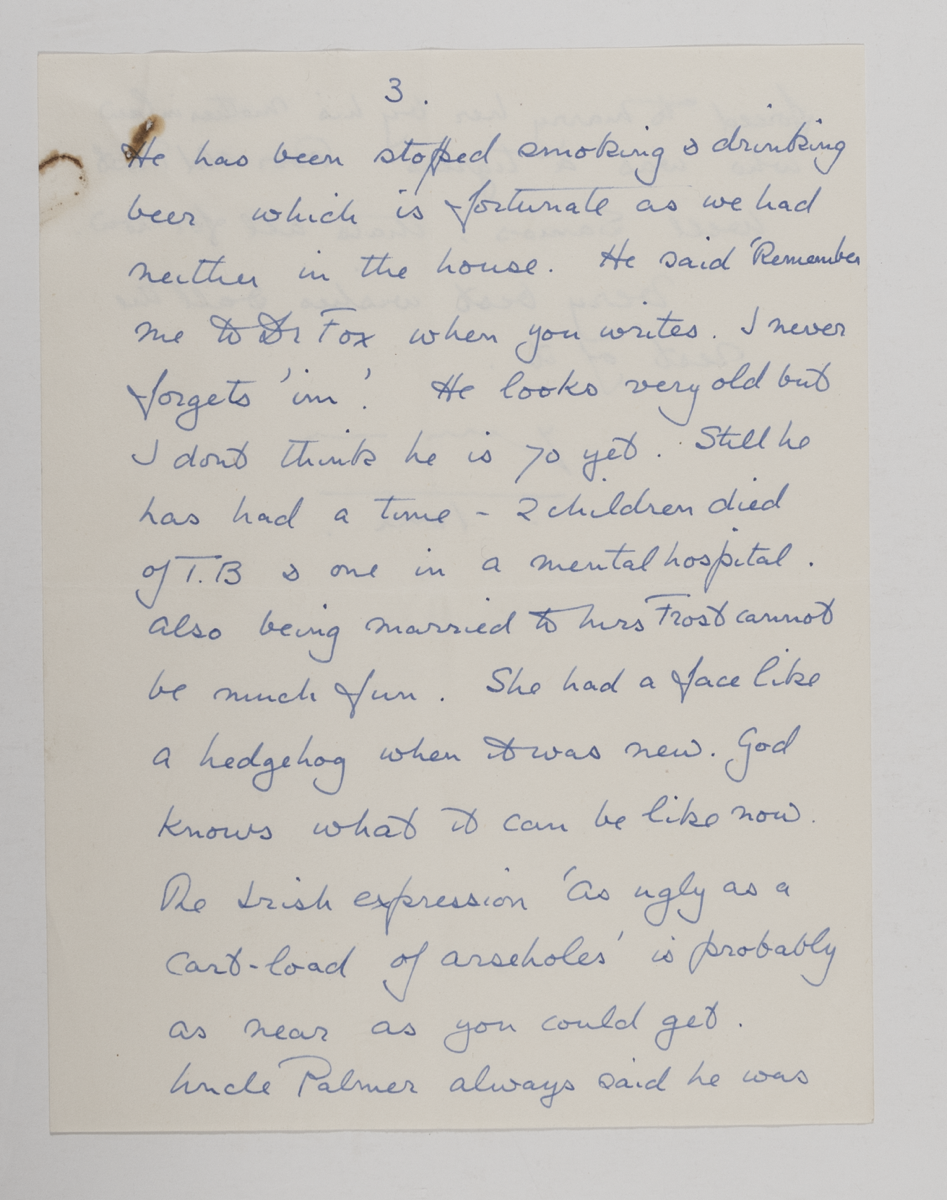 3.
He has been stopped smoking & drinking
beer which is fortunate as we had
neither in the house. He said 'Remember
me to Dr Fox when you writes. I never
forgets 'im'. He looks very old but
I dont think he is 70 yet. Still he
has had a time - 2 children died
of T.B & one in a mental hospital.
Also being married to Mrs Frost cannot
be much fun. She had a face like
a hedgehog when it was new. God
knows what it can be like now.
The Irish expression 'As ugly as a
cart-load of arseholes' is probably
as near as you could get.
Uncle Palmer always said he was